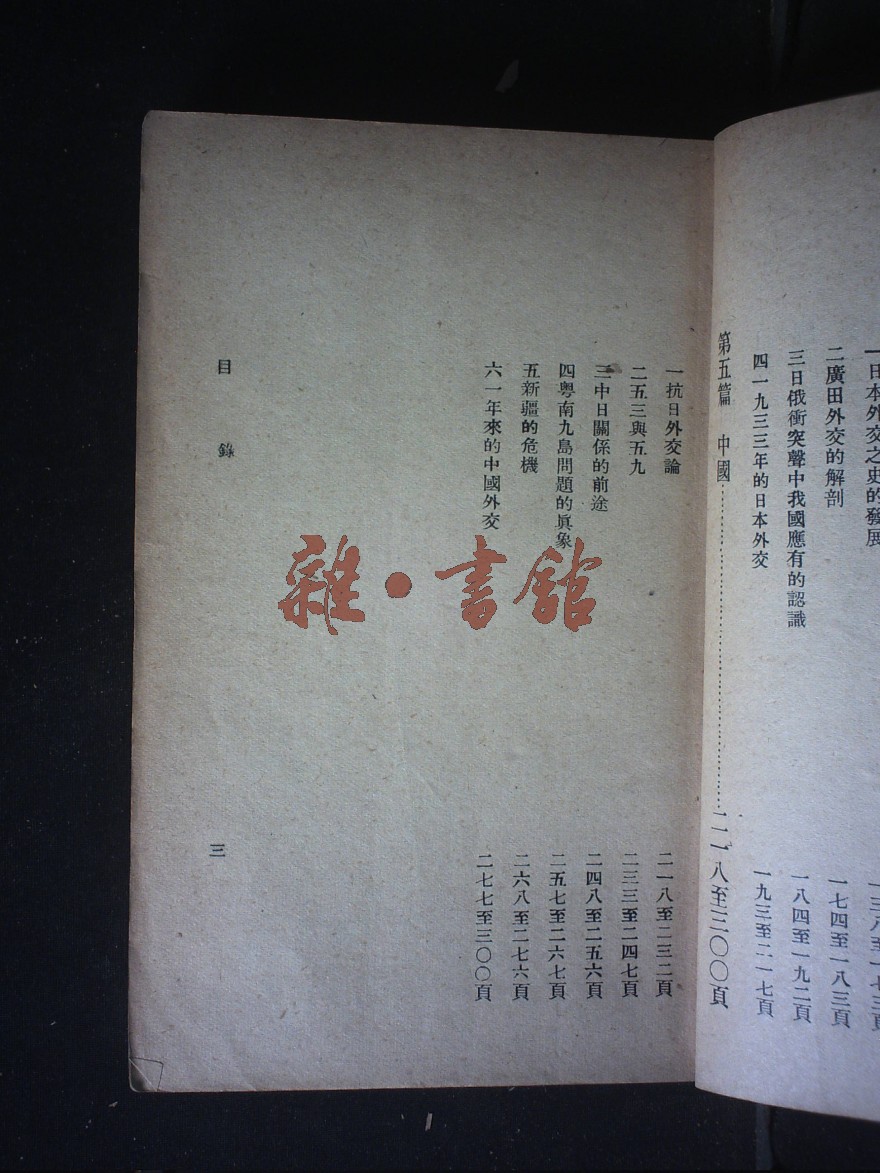 一日本外交之史的發展 一三八至一七三頁
二廣田外交的解剖 一七四至一八三頁
三日俄衝突聲中我國應有的認識 一八四至一九二頁
四一九三三年的日本外交 一九三至二一七頁
第五篇 中國……二一八至三〇〇頁
一抗日外交論 二一八至二三二頁
二五三與五九 二三三至二四七頁
三中日關係的前途 二四八至二五六頁
四粤南九島問題的眞象 二五七至二六七頁
五新疆的危機 二六八至二七六頁
六一年來的中國外交 二七七至三〇〇頁
目錄 三
雜·書館